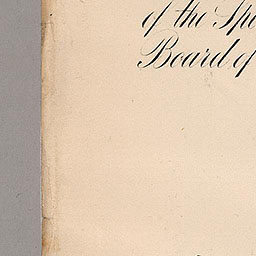 of the Spe
Board of